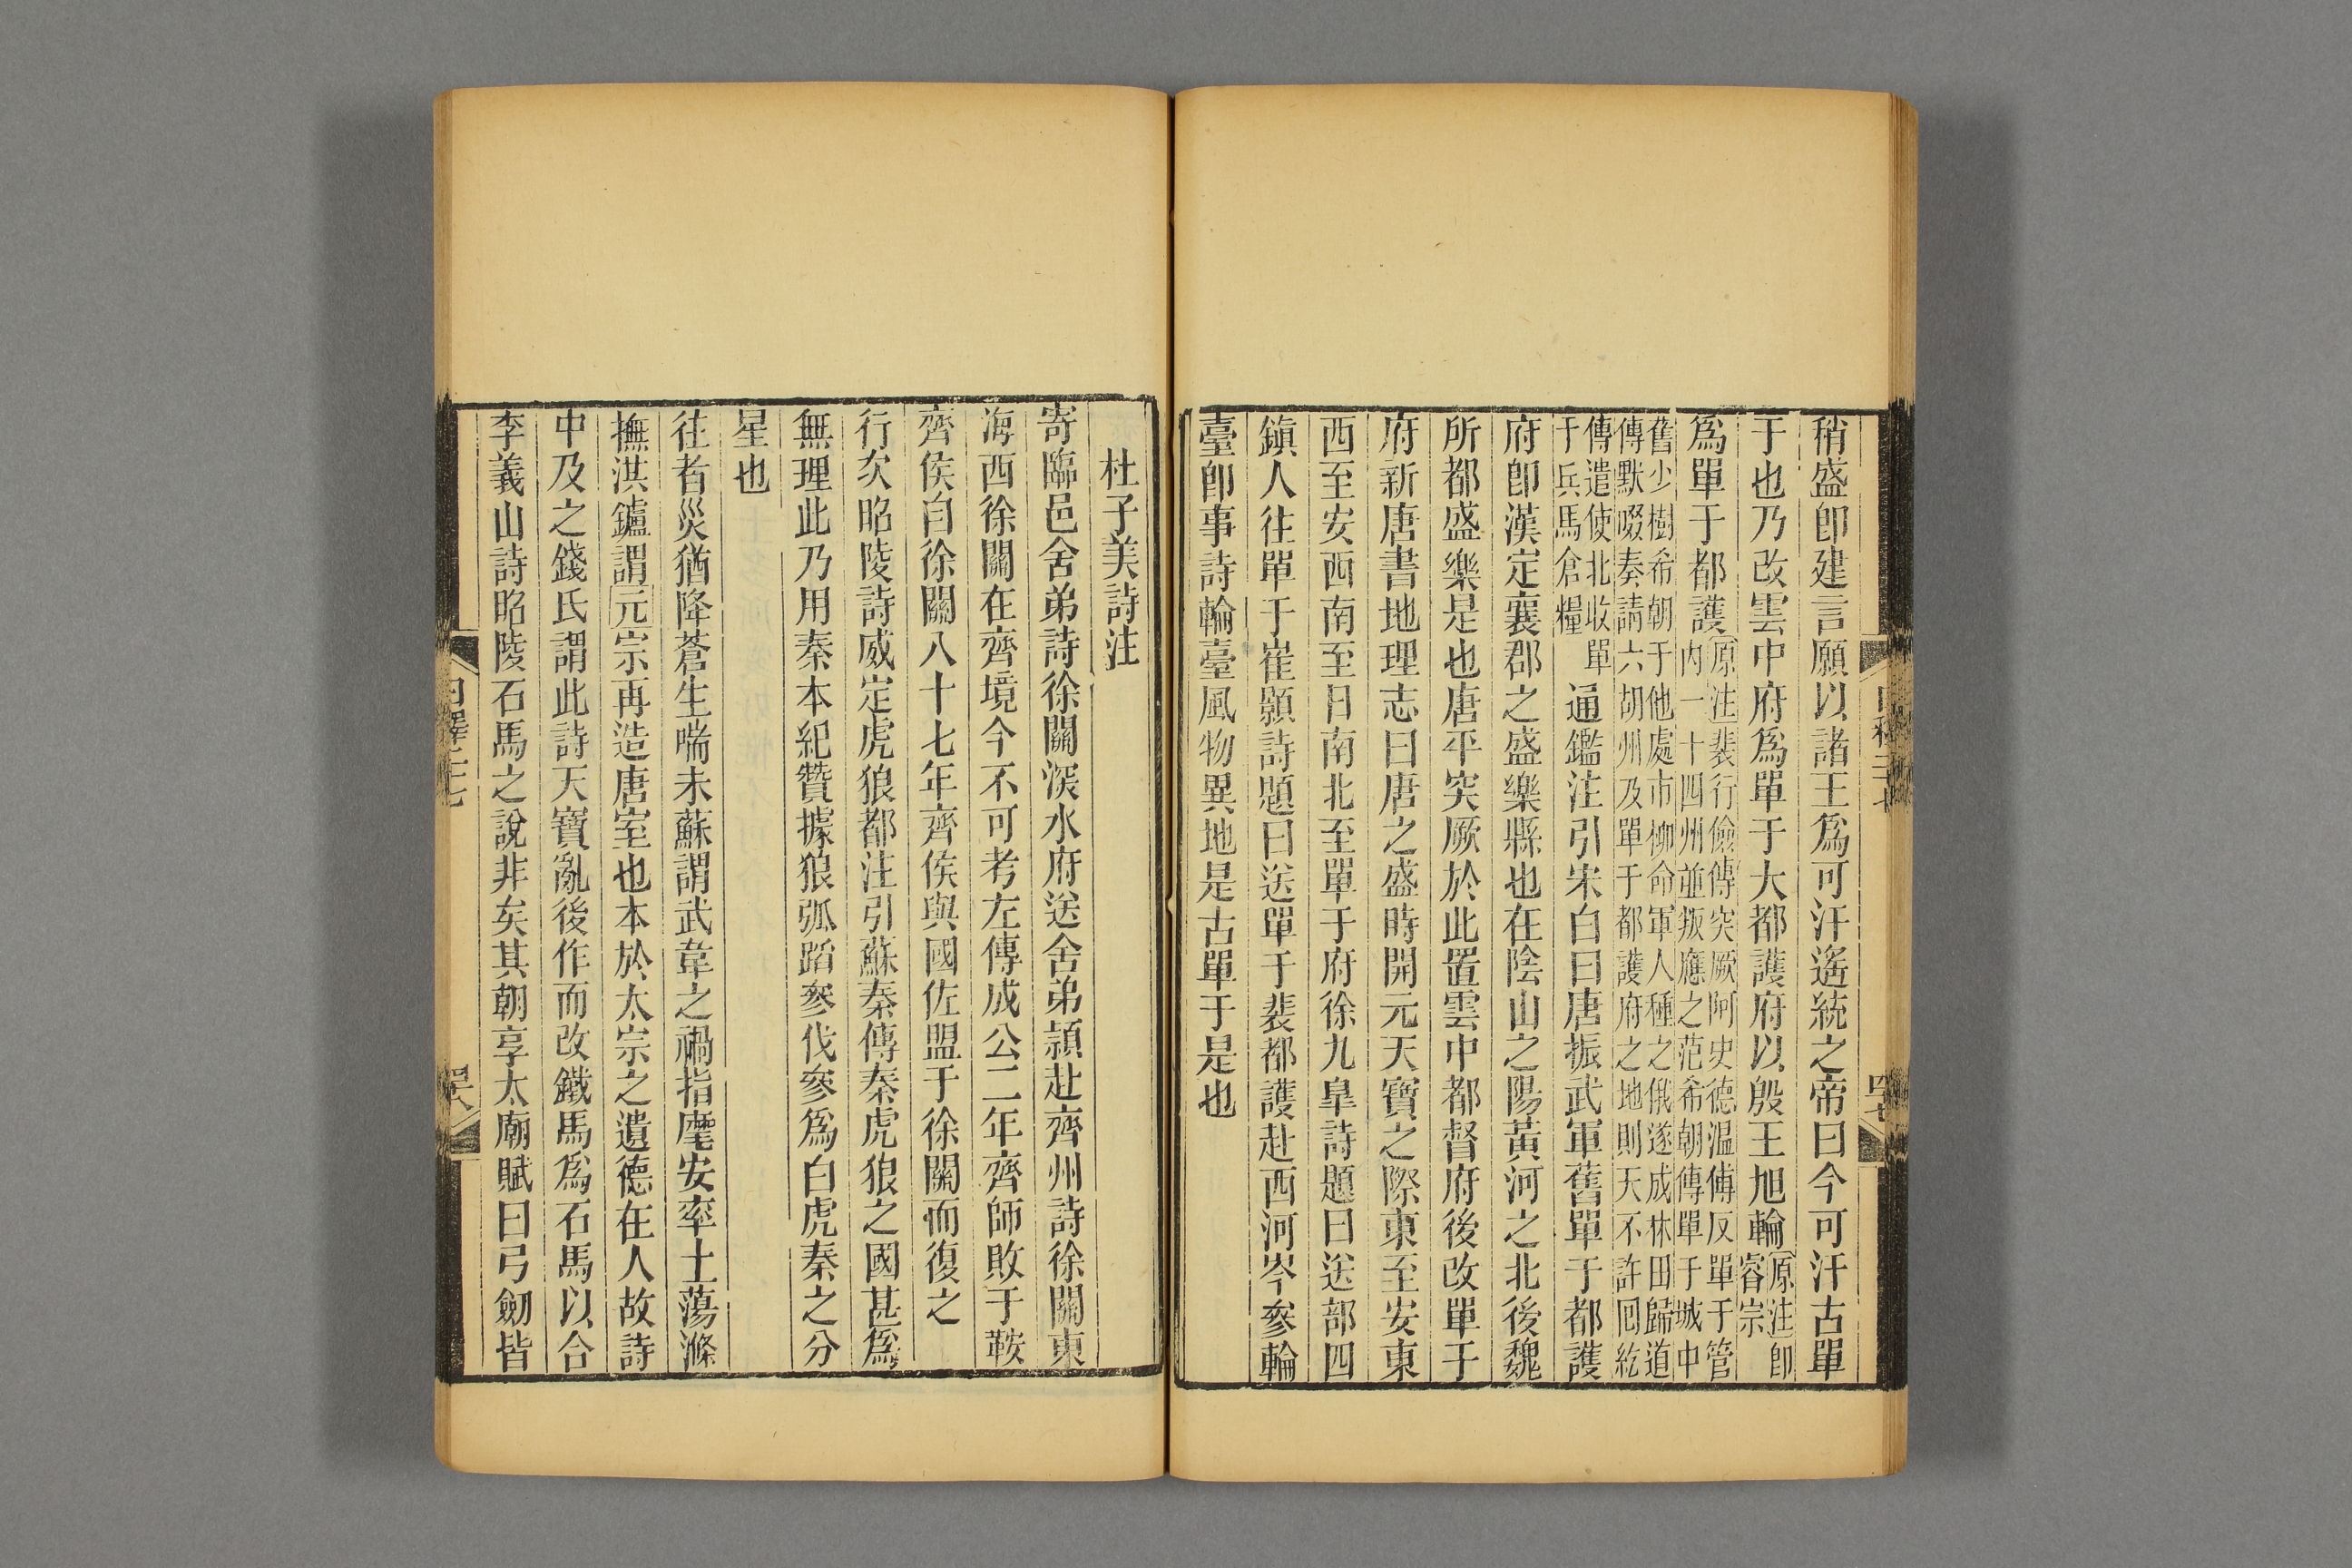 稍盛卽建言願以諸王爲可汗遙統之帝曰今可汗古單
于也乃改雲中府爲單于大都護府以殷王旭輪原注卽睿宗
爲單于都護原注裴行儉傳突厥阿史德溫傅反單于管內二十四州並叛應之范希朝傳單于城中
舊少樹希朝于他處市柳命軍人種之俄遂成林田歸道傳默啜奏請六胡州及單于都護府之地則天不許囘紇
傳遣使北收單于兵馬倉糧通鑑注引宋白曰唐振武軍舊單于都護
府卽漢定襄郡之盛樂縣也在陰山之陽黃河之北後魏
所都盛樂是也唐平突厥於此置雲中都督府後改單于
府新唐書地理志曰唐之盛時開元天寶之際東至安東
西至安西南至日南北至單于府徐九皐詩題曰送部四
鎭人往單于崔顥詩題曰送單于裴都護赴西河岑參輪
臺卽事詩輪臺風物異地是古單于是也
杜子美詩注
寄臨邑舍弟詩徐關深水府送舍弟頴赴齊州詩徐關東
海西徐關在齊境今不可考左傳成公二年齊師敗于鞍
齊侯自徐關入十七年齊侯與國佐盟于徐關而復之
行次昭陵詩威定虎狼都注引蘇秦傳秦虎狼之國甚爲
無理此乃用秦本紀贊據狼弧蹈參伐參爲白虎秦之分
星也
往者災猶降蒼生喘未蘇謂武韋之禍指麾安率土蕩滌
撫洪鑪謂元宗再造唐室也本於太宗之遺德在人故詩
中及之錢氏謂此詩天寶亂後作而改鐵馬爲石馬以合
李義山詩昭陵石馬之說非矣其朝享太廟賦曰弓劒皆